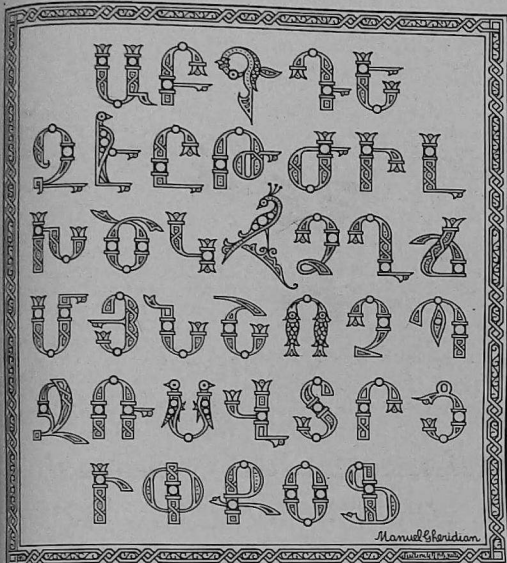 ԱԲԳԴԵ
ԶԷԸԹԺԻԼ
ԽԾԿՀՁՂՃ
ՄՅՆՇՈՉՊ
ՋՌՍՎՏՐՑ
ՒՓՔՕՖ
Manuel Gheridian